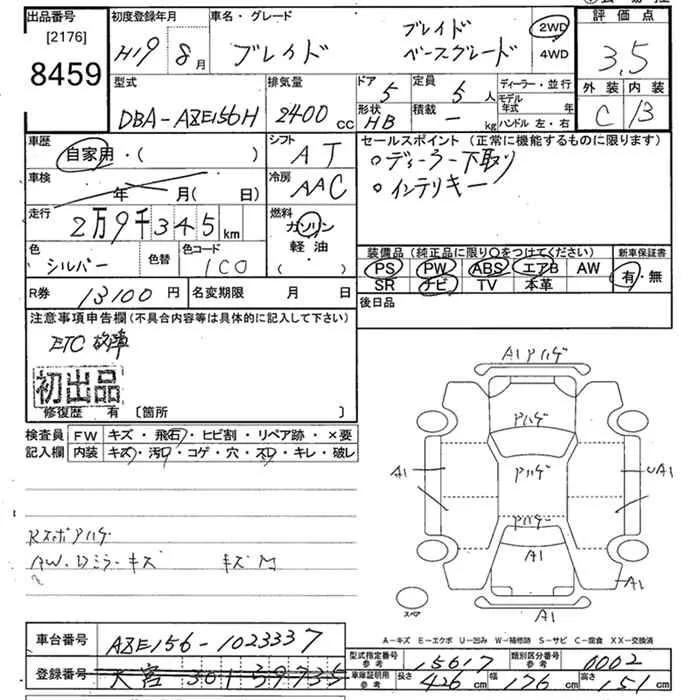 出品番号 初度登録年月 車名・グレード 評価点
[2176] H19年 8月 ブレイド ブレイド ベースグレード 2WD 4WD 3.5
8459 型式 排気量 ドア 5 定員 5人 ディーラー・並行 外装 内装
DBA-AZE156H 2400cc 形状 HB 積載 - kg モデル年式 年 ハンドル 左・右 C B
車歴 自家用・( ) シフト AT セールスポイント (正常に機能するものに限ります)
車検 年 月( 日) 冷房 AAC ○ディーラー下取り
○インテリキー
走行 2万9千345km 燃料 ガソリン 軽油 ( ・ )
色 シルバー 色替 色コード 1C0 装備品 (純正品に限り○をつけてください) 新車保証書
PS PW ABS エアB AW 有・無
R券 13100円 名変期限 月 日 SR ナビ TV 本革
後日品
注意事項申告欄 (不具合内容等は具体的に記入して下さい)
ETC故障
初出品
修復歴 有 〔箇所 〕
検査員 FW キズ・飛石・ヒビ割・リペア跡・×要
記入欄 内装 キズ・汚レ・コゲ・穴・スレ・キレ・破レ
A1アハゲ
アハゲ
A1 アハゲ UA1
アハゲ
A1
A1
A1
スペア
Rスポアハゲ
AW・Dミラーキズ キズM
A-キズ E-エクボ U-凹み W-補修跡 S-サビ C-腐食 XX-交換済
車台番号 AZE156-1023337
型式指定番号 参考 15617 類別区分番号 参考 0002
登録番号 大宮 301 39735 車庫証明用 参考 長さ 426cm 幅 176cm 高さ 151cm